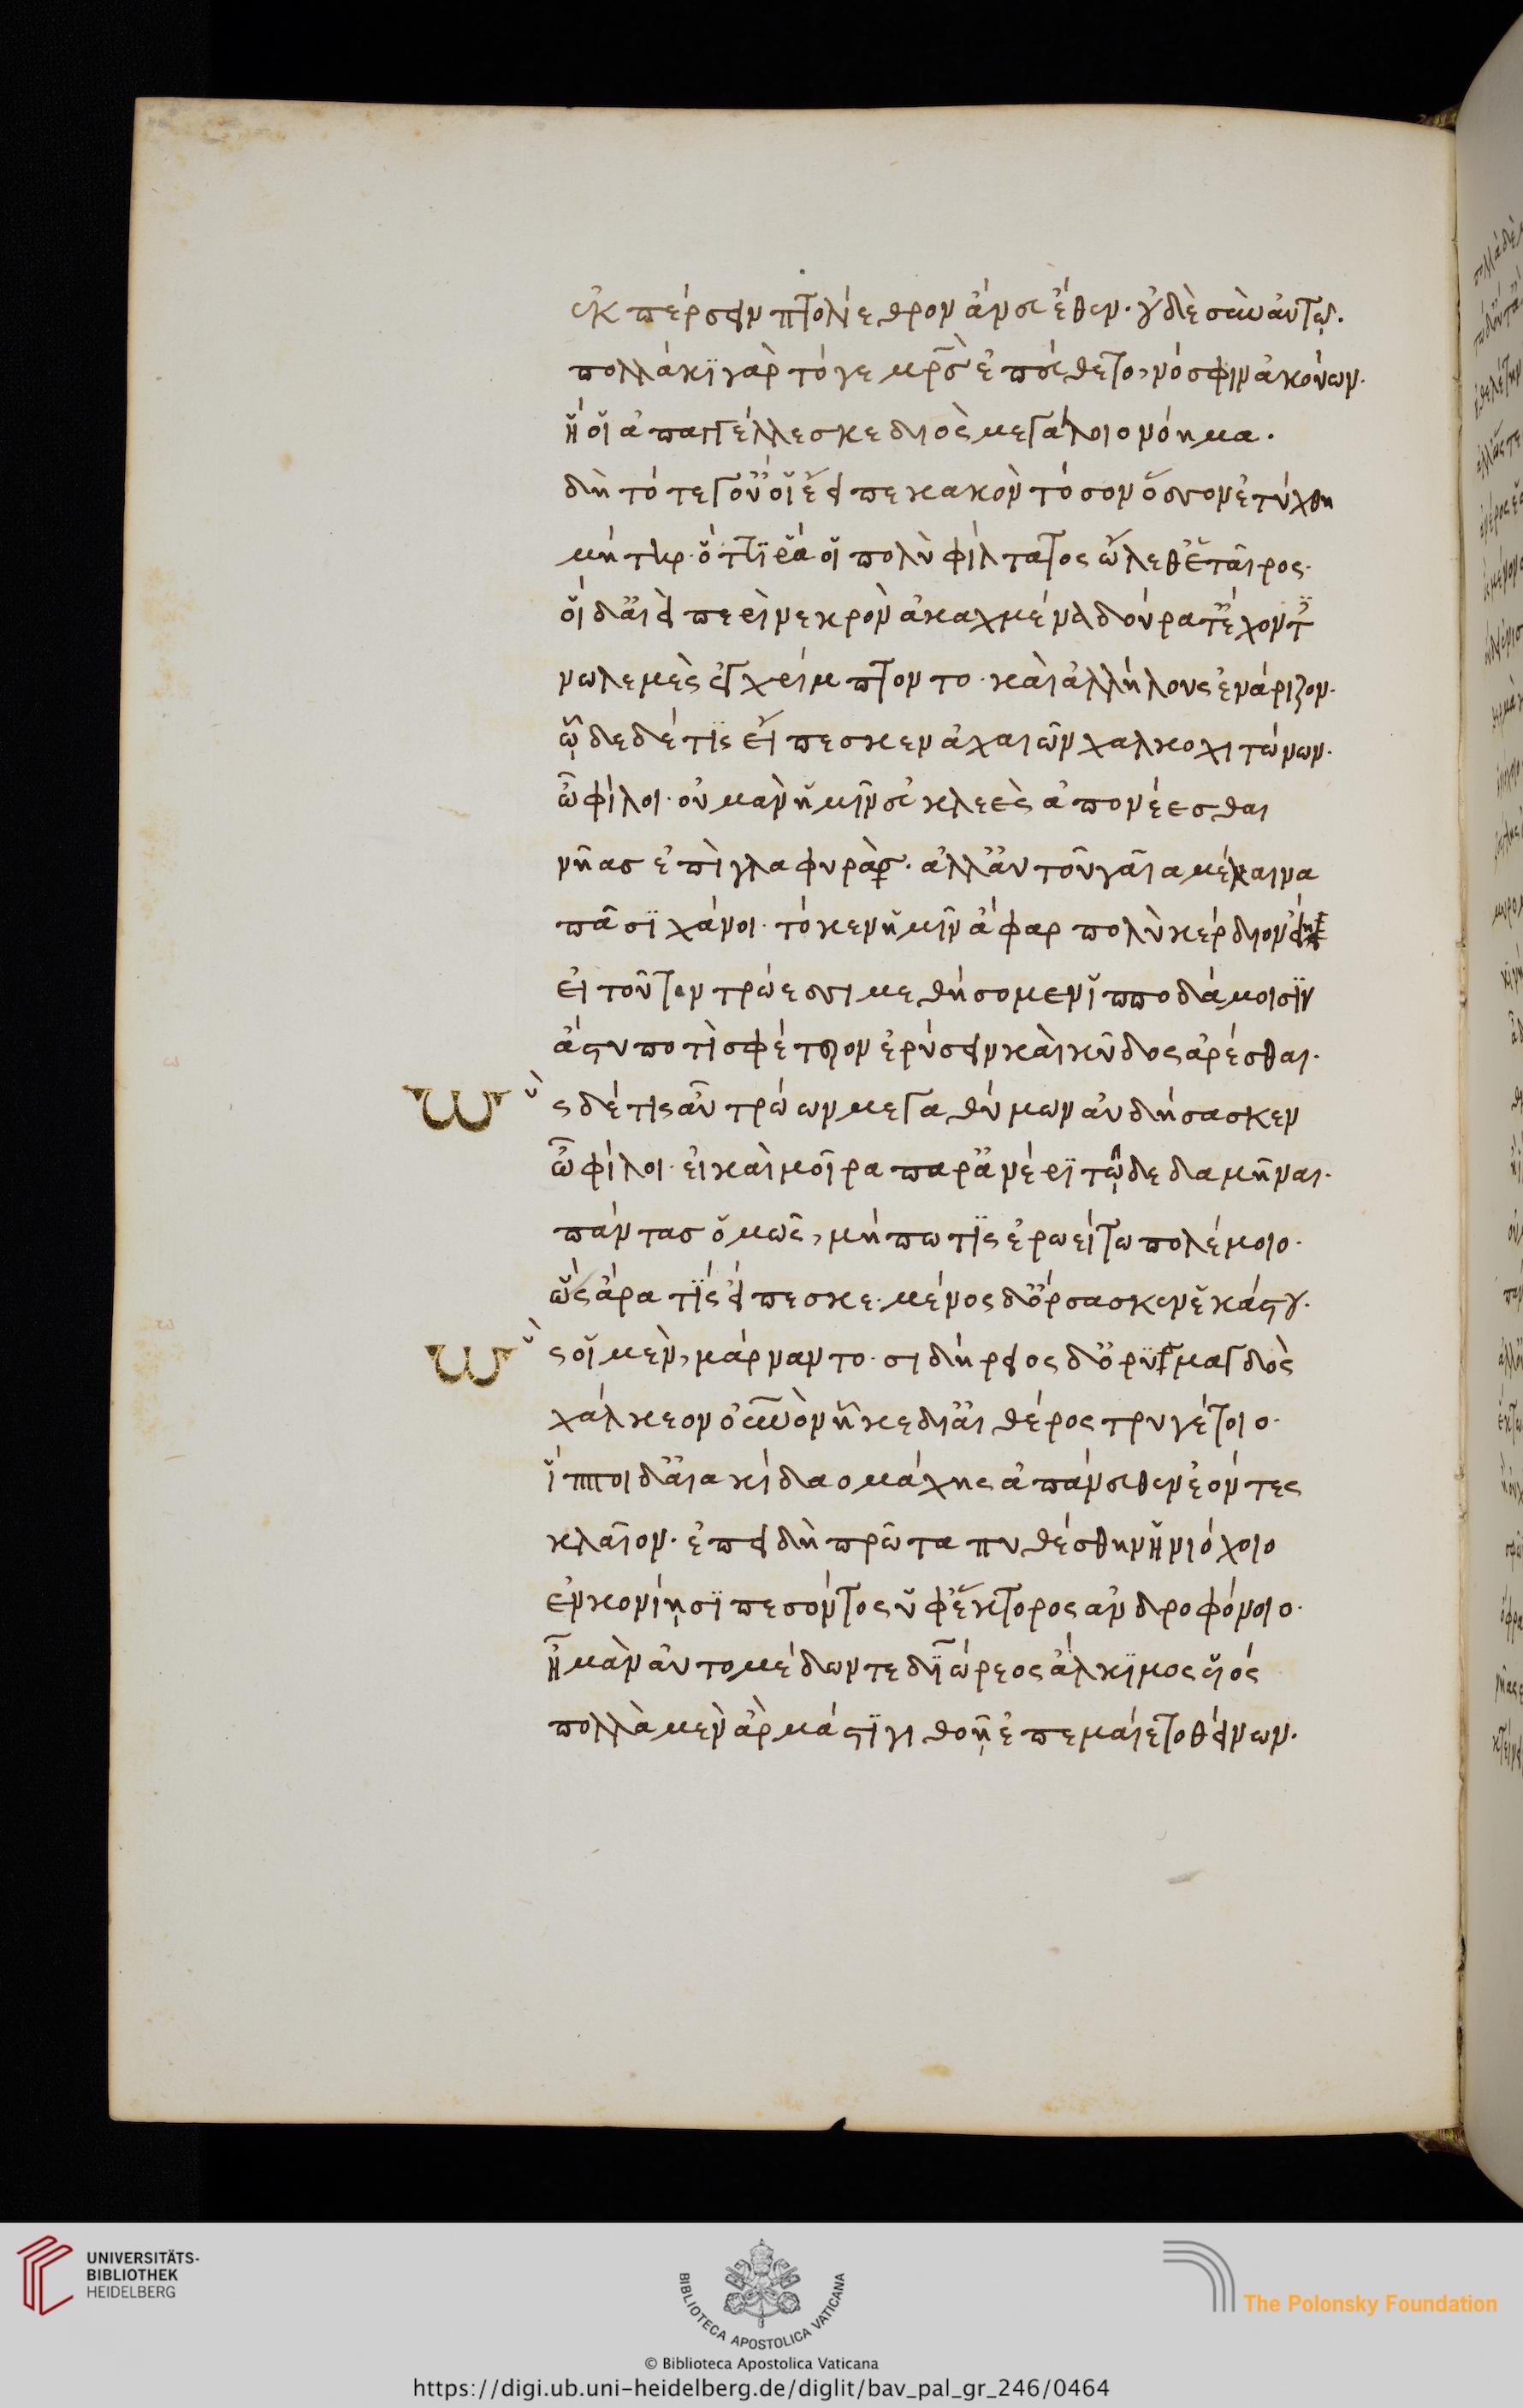 ἐκ πέρσειν πτολίεθρον ἄνευ ἕθεν· οὐδὲ σὺν αὐτῷ.
πολλάκι γὰρ τόγε μρ̅σ ἐπεύθετο, νόσφιν ἀκούων.
ἥ οἱ ἀπαγγέλλεσκε διὸς μεγάλοιο νόημα.
δὴ τότε γοὔ οἱ ἔειπε κακὸν τόσον ὅσσον ἐτύχθη
μήτηρ· ὅττι ῥά οἱ πολὺ φίλτατος ὤλεθ' ἑταῖρος·
οἱ δ' αἰεὶ περὶ νεκρὸν ἀκαχμένα δούρατ' ἔχοντ
νωλεμὲς ἐγχρίμπτοντο· καὶ ἀλλήλους ἐνάριζον·
ὧδε δέ τις εἴπεσκεν ἀχαιῶν χαλκοχιτώνων·
ὦ φίλοι· οὐ μὰν ἧμιν ἐϋκλεὲς ἀπονέεσθαι
νῆας ἐπὶ γλαφυράς· ἀλλ' αὐτοῦ γαῖα μέλαινα
πᾶσι χάνοι· τό κεν ἧμιν ἄφαρ πολὺ κέρδιον εἴη
εἰ τοῦτον τρώεσσι μεθήσομεν ἱπποδάμοισιν
ἄστυ ποτὶ σφέτερον ἐρύσειν καὶ κῦδος ἀρέσθαι.
Ὣς δέ τις αὖ τρώων μεγαθύμων αὐδήσασκεν
ὦ φίλοι· εἰ καὶ μοῖρα παρ' ἀνέρι τῷδε δαμῆναι·
πάντας ὁμῶς, μή πω τις ἐρωείτω πολέμοιο·
ὣς ἄρα τις εἴπεσκε· μένος δ' ὄρσασκεν ἑκάστου.
Ὣς οἱ μὲν, μάρναντο· σιδήρειος δ' ὀρυμαγδὸς
χάλκεον οὐρανὸν ἧκε δι' αἰθέρος τρυγέτοιο·
ἵπποι δ' αἰακίδαο μάχης ἀπάνευθεν ἐόντες
κλαῖον· ἐπειδὴ πρῶτα πυθέσθην ἡνιόχοιο
ἐν κονίῃσι πεσόντος ὑφ' ἕκτορος ἀνδροφόνοιο·
ἦ μὰν αὐτομέδων τε διώρεος ἄλκιμος υἱός
πολλὰ μὲν ἂρ μάστιγι θοῇ ἐπεμαίετο θείνων.
UNIVERSITÄTS-
BIBLIOTHEK
HEIDELBERG
BIBLIOTECA APOSTOLICA VATICANA
The Polonsky Foundation
© Biblioteca Apostolica Vaticana
https://digi.ub.uni-heidelberg.de/diglit/bav_pal_gr_246/0464